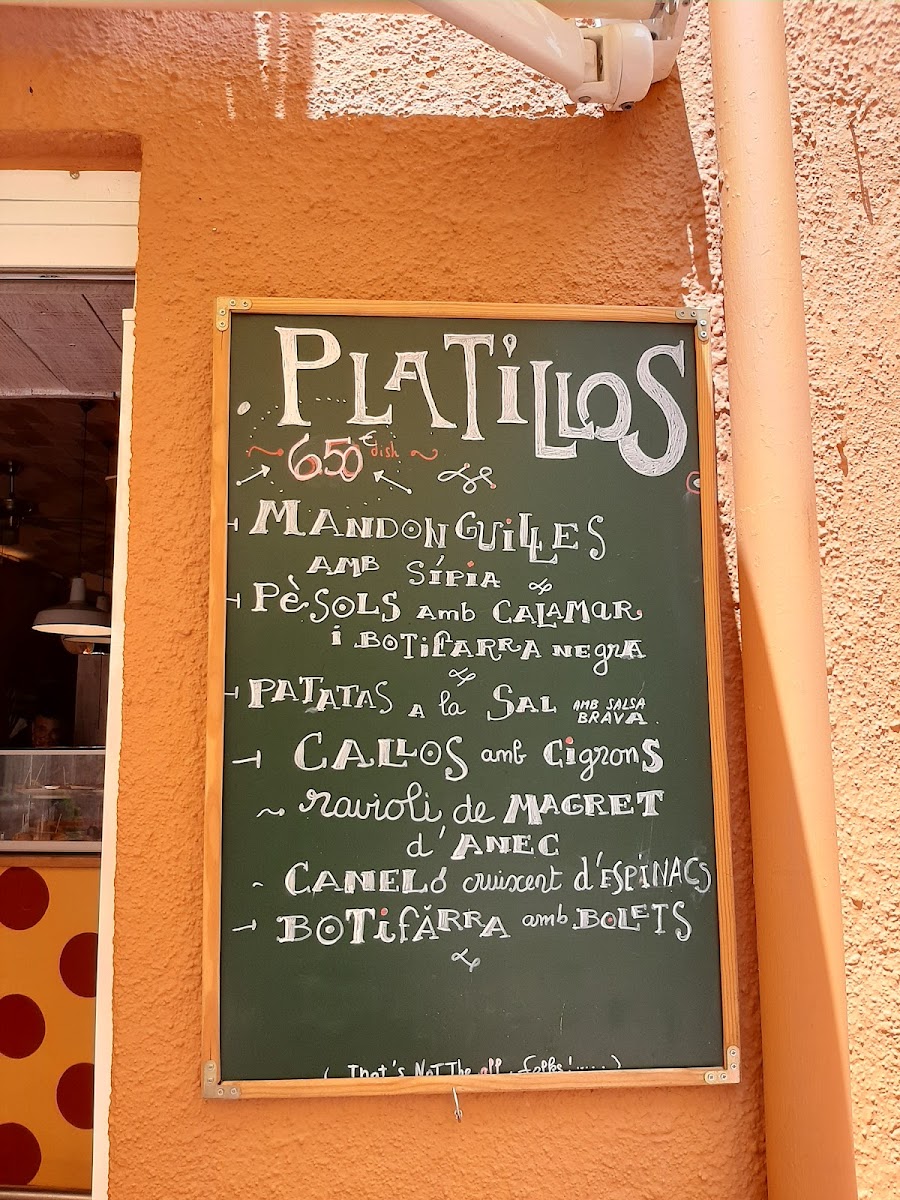 PLATiLLOS
650€ dish
MANDONGUiLLES
AMB SÍPIA
PÈSOLS amb CALAMAR
i BOTifARRA NEgRA
PATATAS A la SAL AMB SALSA
BRAVA
CALLOS amb CigronS
ravioli de MAGRET
d'ANEC
CANELÓ cruixent d'ESPINACS
BOTifARRA amb BOLETS
( That's NoT The all folks!......)